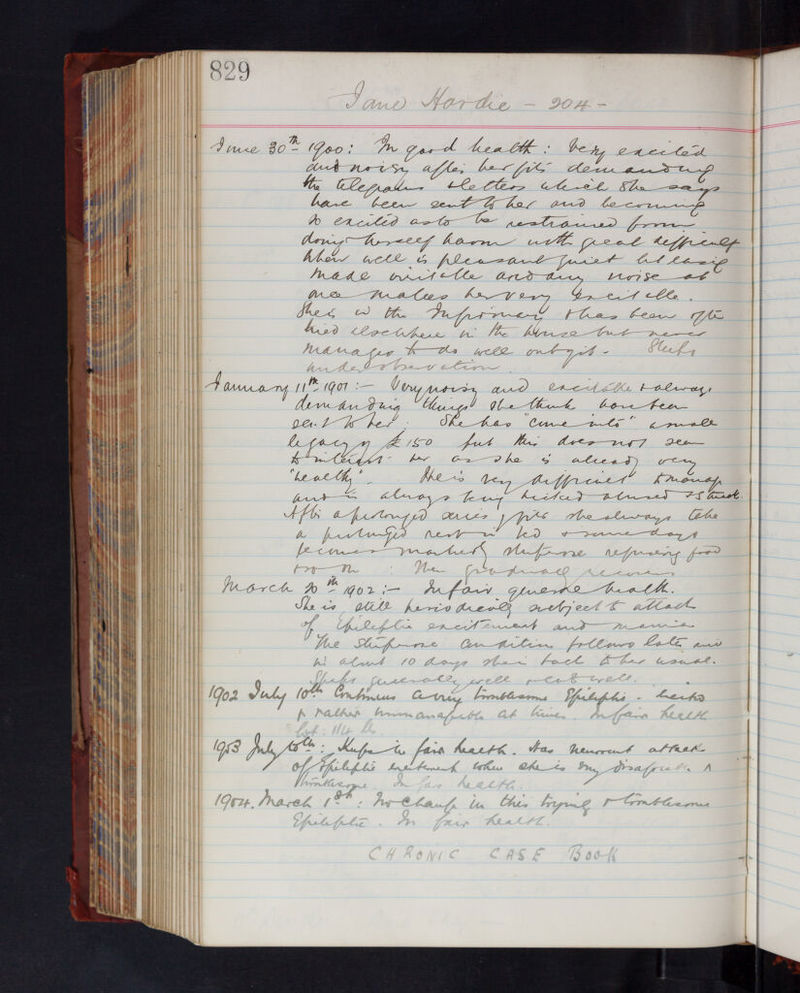 829
Jane Hardie - 204 -
June 30th 1900: In good health: Very excited
and noisy after her fits demanding
the telegrams & letters which she says
have been sent to her and becoming
so excited as to be restrained from
doing herself harm with great difficulty
When well is pleasant quiet but easily
made irritable and any noise at
once makes her very excitable.
She is in the Infirmary & has been often
tried elsewhere in the house but never
manages to do well out of it - Sleeps
under observation
January 11th 1901:- Very noisy and excitable & always
demanding things she thinks have been
sent to her. She has "come into" a small
legacy of £150 but this does not seem
to interest her as she is already very
"wealthy". She is very difficult to manage
and is always being kicked abused &
After a prolonged series of fits she always takes
a prolonged rest in bed & some days
becomes markedly stuporose refusing food
& so on: Then gradually recovers
March 20th 1902:- In fair general health.
She is still periodically subject to attacks
of Epileptic excitement and mania
The stuporose condition follows later and
in about 10 days she is back to her usual.
Sleeps generally well & eats well.
1902 July 10th Continues a very troublesome Epileptic -
& rather unmanageable at times. In fair health
1903 July 10th: Keeps in fair health. Has recurrent attacks
of Epileptic excitement when she is very &
troublesome. In fair health.
1904. March 1st: No change in this trying & troublesome
Epileptic. In fair health.
CHRONIC CASE BOOK